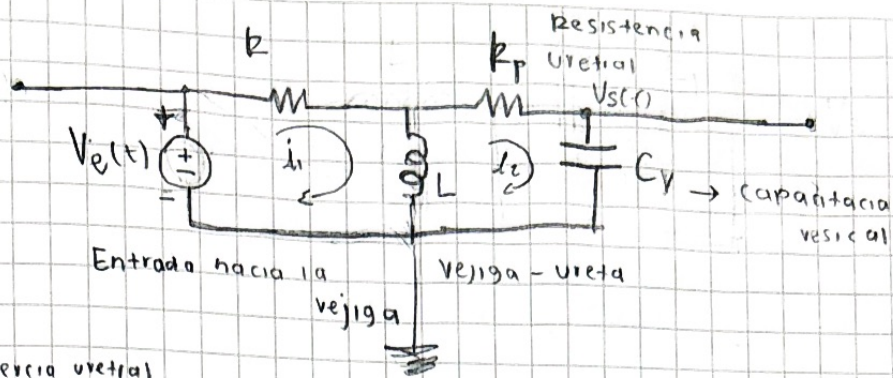 Resistencia
uretral
R
Rp
Vs(t)
+
Ve(t)
+
-
-
i1
L
i2
Cv → capacitacia
vesical
Entrada hacia la
vejiga
vejiga - ureta
uretral